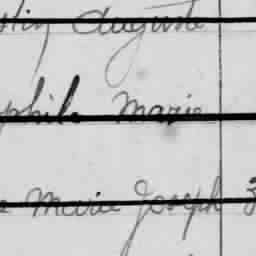 Auguste
phile Marie
Marie Joseph